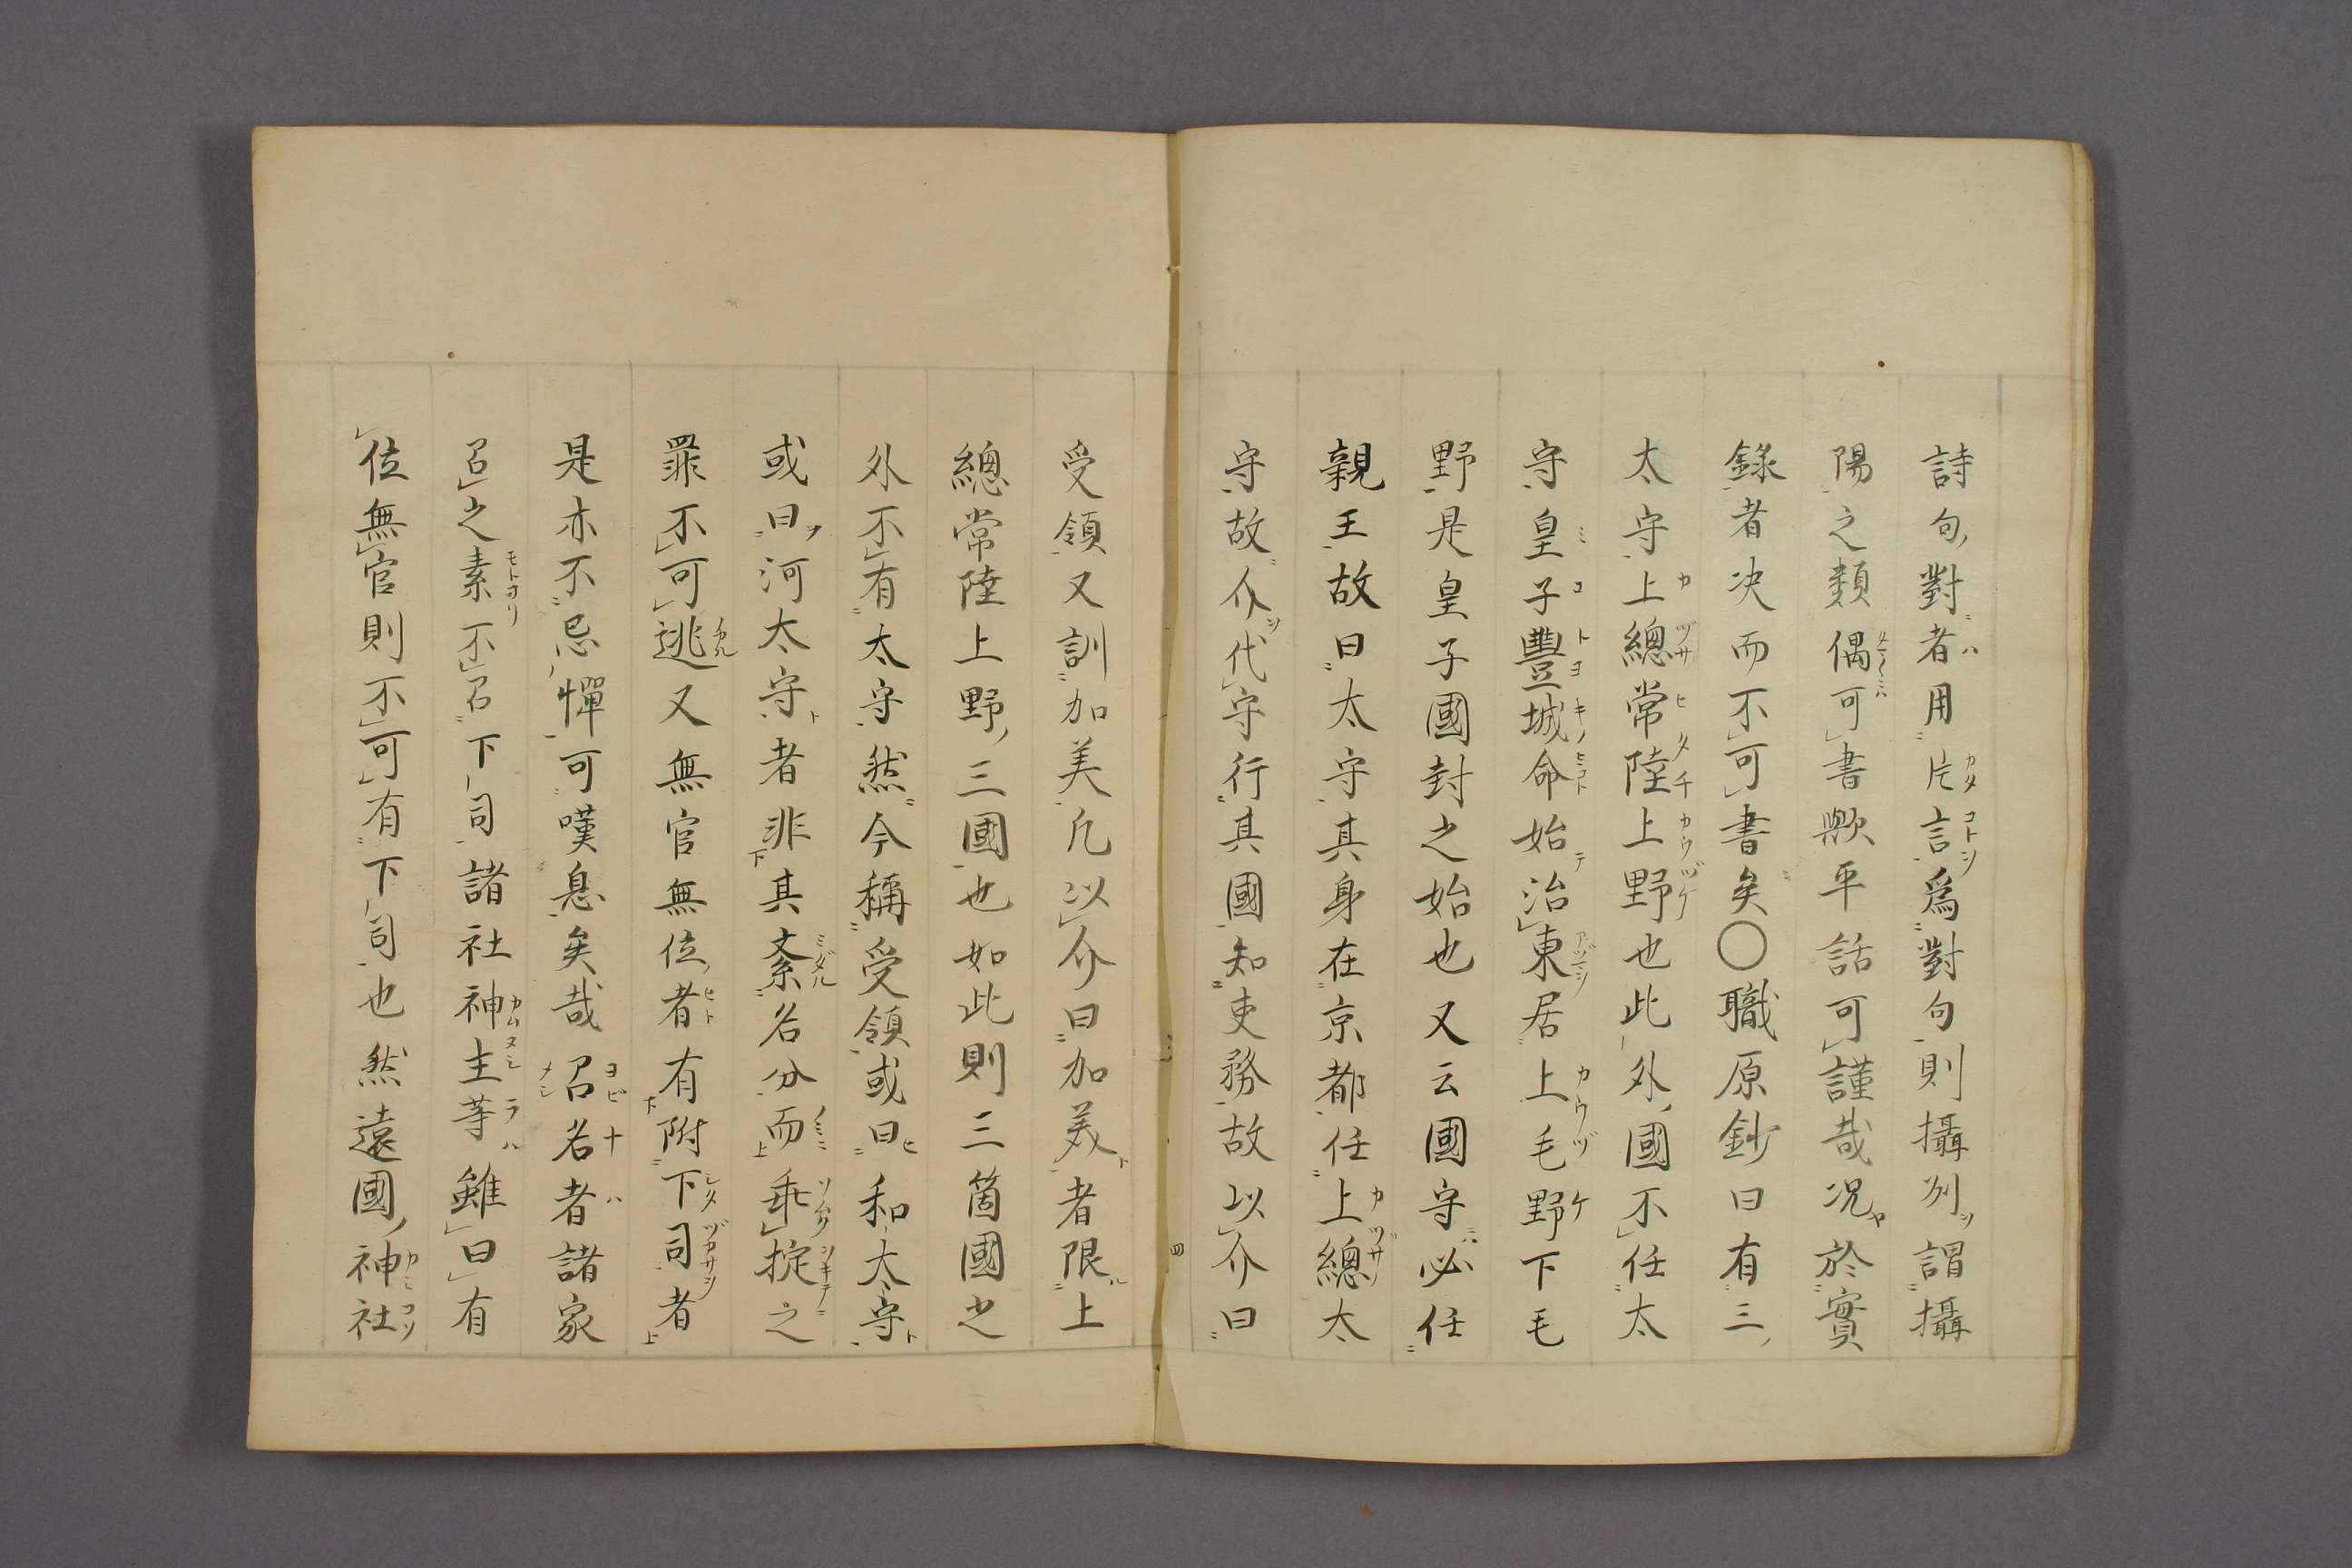 詩句對者用片言爲對句則攝列謂攝
陽之類偶可書歟平話可謹哉况於實
錄者决而不可書矣〇職原鈔曰有三
太守上總常陸上野也此外國不任太
守皇子豐城命始治東居上毛野下毛
野是皇子國封之始也又云國守必任
親王故曰太守其身在京都任上總太
守故介代守行其國知吏務故以介曰
四
受領又訓加美凡以介曰加美者限上
總常陸上野三國也如此則三箇國之
外不有太守然今稱受領或曰和太守
或曰河太守者非其紊名分而乖掟之
罪不可逃又無官無位者有附下司者
是亦不忌憚可嘆息矣哉召名者諸家
召之素不召下司諸社神主等雖曰有
位無官則不可有下司也然遠國神社